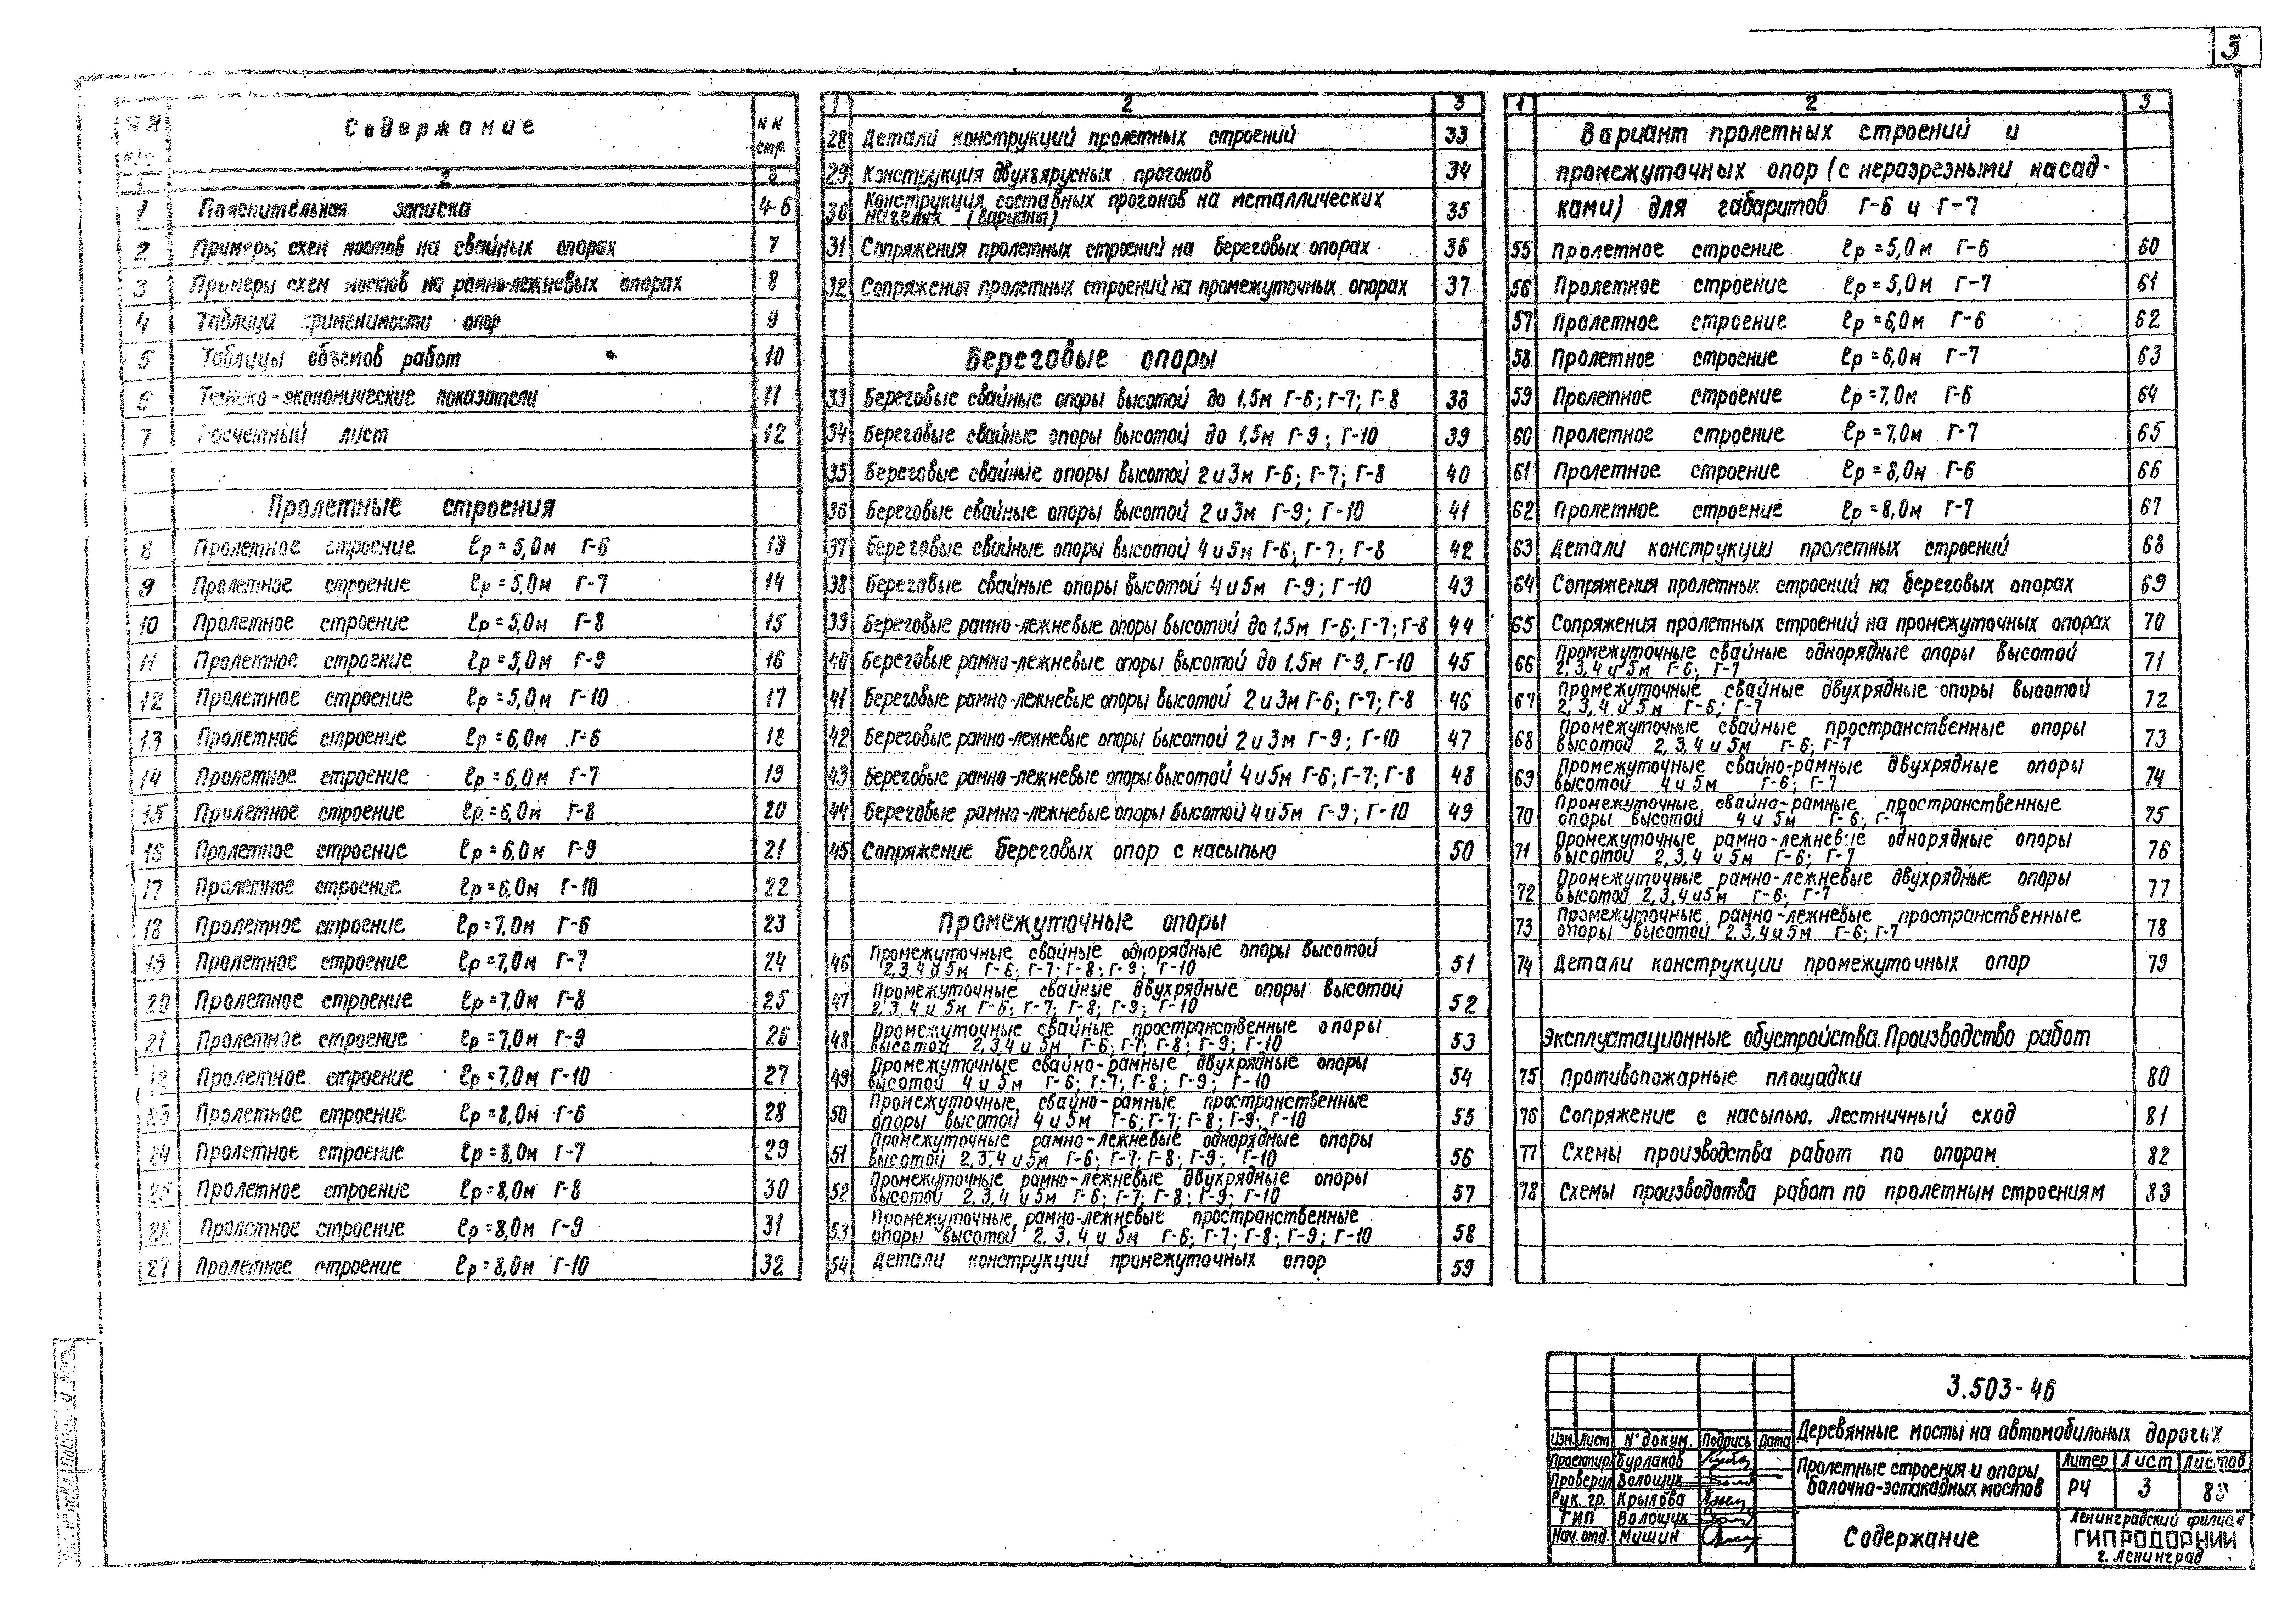 3
Содержание
N N стр.
2 3
1 Пояснительная записка 4-6
2 Примеры схем мостов на свайных опорах 7
3 Примеры схем мостов на рамно-лежневых опорах 8
4 Таблица применимости опор 9
5 Таблицы объемов работ 10
6 Технико-экономические показатели 11
7 Расчетный лист 12
Пролетные строения
8 Пролетное строение ℓр=5,0м Г-6 13
9 Пролетное строение ℓр=5,0м Г-7 14
10 Пролетное строение ℓр=5,0м Г-8 15
11 Пролетное строение ℓр=5,0м Г-9 16
12 Пролетное строение ℓр=5,0м Г-10 17
13 Пролетное строение ℓр=6,0м Г-6 18
14 Пролетное строение ℓр=6,0м Г-7 19
15 Пролетное строение ℓр=6,0м Г-8 20
16 Пролетное строение ℓр=6,0м Г-9 21
17 Пролетное строение ℓр=6,0м Г-10 22
18 Пролетное строение ℓр=7,0м Г-6 23
19 Пролетное строение ℓр=7,0м Г-7 24
20 Пролетное строение ℓр=7,0м Г-8 25
21 Пролетное строение ℓр=7,0м Г-9 26
Пролетное строение ℓр=7,0м Г-10 27
23 Пролетное строение ℓр=8,0м Г-6 28
24 Пролетное строение ℓр=8,0м Г-7 29
25 Пролетное строение ℓр=8,0м Г-8 30
26 Пролетное строение ℓр=8,0м Г-9 31
27 Пролетное строение ℓр=8,0м Г-10 32
1 2 3
28 Детали конструкций пролетных строений 33
29 Конструкция двухъярусных прогонов 34
30 Конструкция составных прогонов на металлических
нагелях (вариант) 35
31 Сопряжения пролетных строений на береговых опорах 36
32 Сопряжения пролетных строений на промежуточных опорах 37
Береговые опоры
33 Береговые свайные опоры высотой до 1,5м Г-6; Г-7; Г-8 38
34 Береговые свайные опоры высотой до 1,5м Г-9; Г-10 39
35 Береговые свайные опоры высотой 2 и 3м Г-6; Г-7; Г-8 40
36 Береговые свайные опоры высотой 2 и 3м Г-9; Г-10 41
37 Береговые свайные опоры высотой 4 и 5м Г-6; Г-7; Г-8 42
38 Береговые свайные опоры высотой 4 и 5м Г-9; Г-10 43
39 Береговые рамно-лежневые опоры высотой до 1,5м Г-6; Г-7; Г-8 44
40 Береговые рамно-лежневые опоры высотой до 1,5м Г-9, Г-10 45
41 Береговые рамно-лежневые опоры высотой 2 и 3м Г-6; Г-7; Г-8 46
42 Береговые рамно-лежневые опоры высотой 2 и 3м Г-9; Г-10 47
43 Береговые рамно-лежневые опоры высотой 4 и 5м Г-6; Г-7; Г-8 48
44 Береговые рамно-лежневые опоры высотой 4 и 5м Г-9; Г-10 49
45 Сопряжение береговых опор с насыпью 50
Промежуточные опоры
46 Промежуточные свайные однорядные опоры высотой
2,3,4 и 5м Г-6; Г-7; Г-8; Г-9; Г-10 51
47 Промежуточные свайные двухрядные опоры высотой
2,3,4 и 5м Г-6; Г-7; Г-8; Г-9; Г-10 52
48 Промежуточные свайные пространственные опоры
высотой 2,3,4 и 5м Г-6; Г-7; Г-8; Г-9; Г-10 53
49 Промежуточные свайно-рамные двухрядные опоры
высотой 4 и 5м Г-6; Г-7; Г-8; Г-9; Г-10 54
50 Промежуточные свайно-рамные пространственные
опоры высотой 4 и 5м Г-6; Г-7; Г-8; Г-9; Г-10 55
51 Промежуточные рамно-лежневые однорядные опоры
высотой 2,3,4 и 5м Г-6; Г-7; Г-8; Г-9; Г-10 56
52 Промежуточные рамно-лежневые двухрядные опоры
высотой 2,3,4 и 5м Г-6; Г-7; Г-8; Г-9; Г-10 57
53 Промежуточные рамно-лежневые пространственные
опоры высотой 2,3,4 и 5м Г-6; Г-7; Г-8; Г-9; Г-10 58
54 Детали конструкций промежуточных опор 59
1 2 3
Вариант пролетных строений и
промежуточных опор (с неразрезными насад-
ками) для габаритов Г-6 и Г-7
55 Пролетное строение ℓр=5,0м Г-6 60
56 Пролетное строение ℓр=5,0м Г-7 61
57 Пролетное строение ℓр=6,0м Г-6 62
58 Пролетное строение ℓр=6,0м Г-7 63
59 Пролетное строение ℓр=7,0м Г-6 64
60 Пролетное строение ℓр=7,0м Г-7 65
61 Пролетное строение ℓр=8,0м Г-6 66
62 Пролетное строение ℓр=8,0м Г-7 67
63 Детали конструкции пролетных строений 68
64 Сопряжения пролетных строений на береговых опорах 69
65 Сопряжения пролетных строений на промежуточных опорах 70
66 Промежуточные свайные однорядные опоры высотой
2,3,4 и 5м Г-6; Г-7 71
67 Промежуточные свайные двухрядные опоры высотой
2,3,4 и 5м Г-6; Г-7 72
68 Промежуточные свайные пространственные опоры
высотой 2,3,4 и 5м Г-6; Г-7 73
69 Промежуточные свайно-рамные двухрядные опоры
высотой 4 и 5м Г-6; Г-7 74
70 Промежуточные свайно-рамные пространственные
опоры высотой 4 и 5м Г-6; Г-7 75
71 Промежуточные рамно-лежневые однорядные опоры
высотой 2,3,4 и 5м Г-6; Г-7 76
72 Промежуточные рамно-лежневые двухрядные опоры
высотой 2,3,4 и 5м Г-6; Г-7 77
73 Промежуточные рамно-лежневые пространственные
опоры высотой 2,3,4 и 5м Г-6; Г-7 78
74 Детали конструкции промежуточных опор 79
Эксплуатационные обустройства. Производство работ
75 Противопожарные площадки 80
76 Сопряжение с насыпью. Лестничный сход 81
77 Схемы производства работ по опорам 82
78 Схемы производства работ по пролетным строениям 83
3.503-46
Деревянные мосты на автомобильных дорогах
Изм. Лист N° докум. Подпись Дата
Проектир. Бурлаков
Проверил Волощук
Рук. гр. Крылова
ГИП Волощук
Нач. отд. Мишин
Пролетные строения и опоры
балочно-эстакадных мостов
Литер Лист Листов
РЧ 3 83
Содержание
Ленинградский филиал
ГИПРОДОРНИИ
г. Ленинград